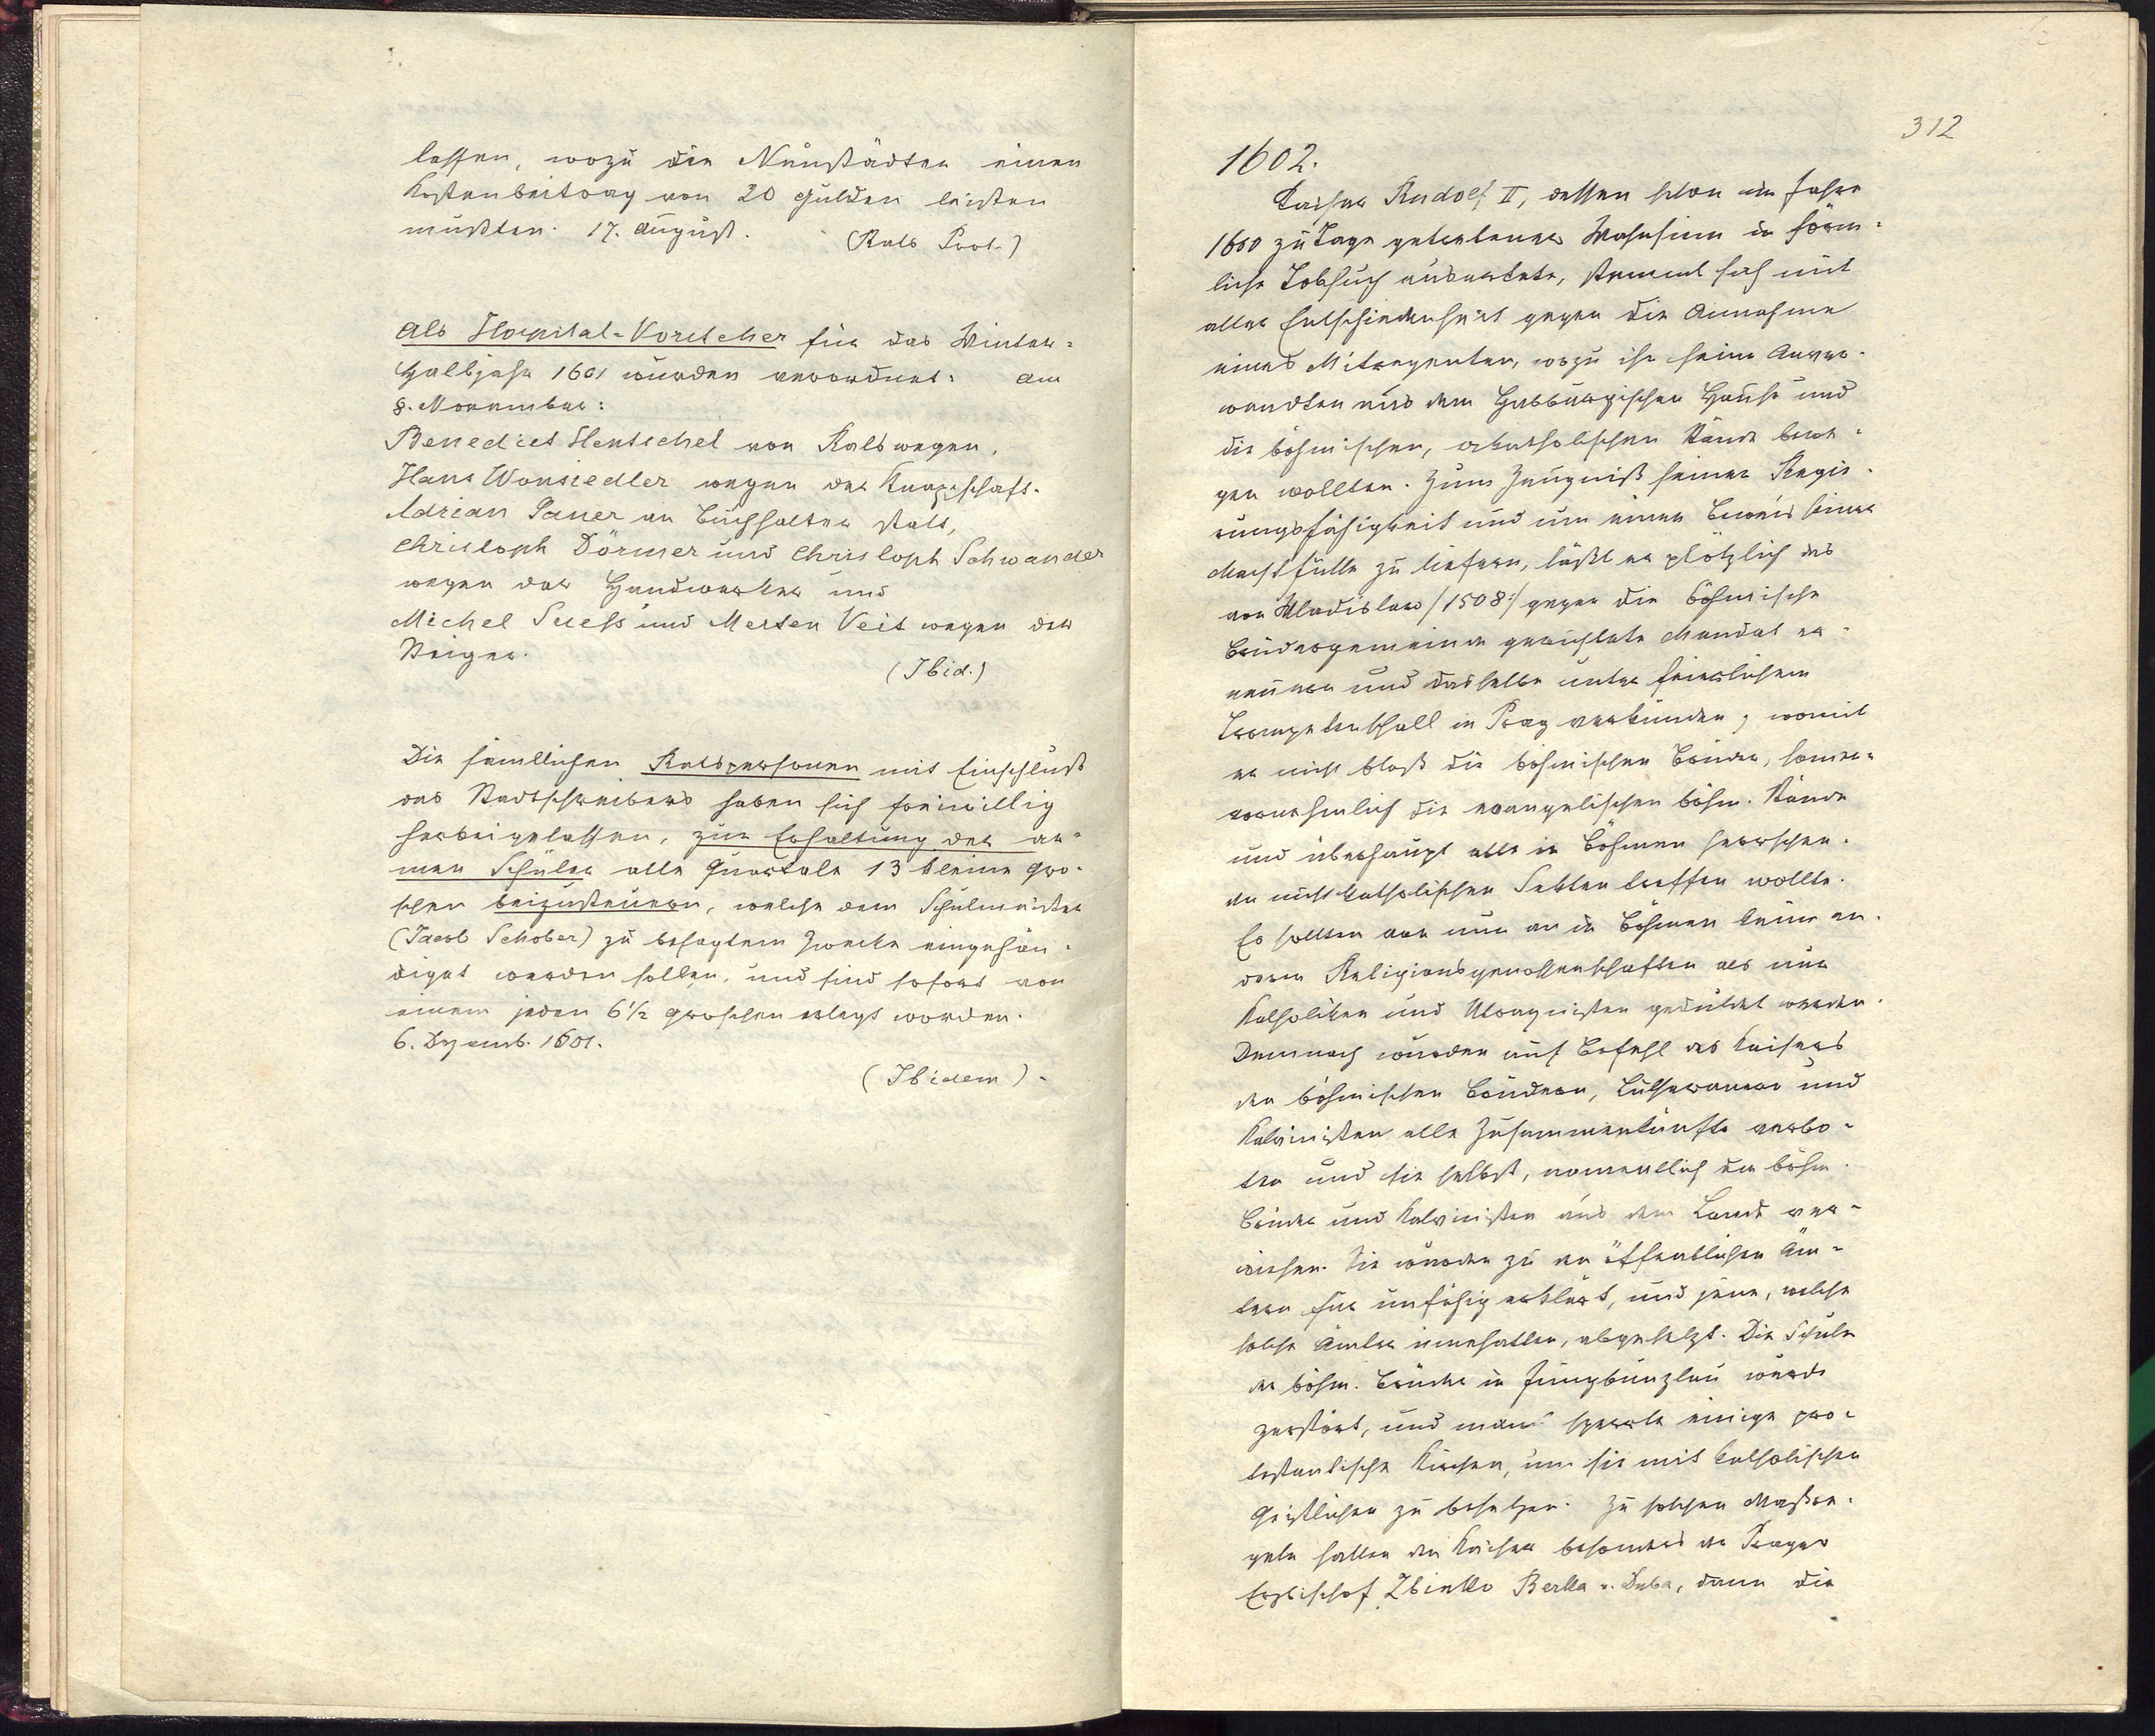 lassen, wozu die Neustädter einen
Kostenbeitrag von 20 Gulden leisten
mußten. 17. August. (Rats Prot.)
Als Hospital-Vorsteher für das Winter-
Halbjahr 1601 wurden verordnet: Am
8. November:
Benedict Hentschel von Ratswegen,
Hans Wonsiedler wegen der Knappschaft.
Adrian Paner an Buchhalter statt,
Christoph Dörmer und Christoph Schwander
wegen der Handwerker und
Michel Suess und Merten Veit wegen der
Steiger.
(Ibid.)
Die sämtlichen Ratspersonen mit Einschluß
des Stadtschreibers haben sich freiwillig
herbeigelassen, zur Erhaltung der ar-
men Schüler alle Quartale 13 kleine Gro-
schen beizusteuern, welche dem Schulmeister
(Jacob Schober) zu besagtem Zwecke eingehän-
digt werden sollen, und sind sofort von
einem jeden 6 1/2 Groschen erlegt worden.
6. Dezemb. 1601.
(Ibidem).
312
1602.
Kaiser Rudolf II, dessen schon im Jahre
1600 zu Tage getretener Wahnsinn in förm-
liche Tobsuch ausartete, stemmt sich mit
aller Entschiedenheit gegen die Annahme
eines Mitregenten, wozu ihn seine Anver-
wandten aus dem Habsburgischen Hause und
die böhmischen, akatholischen Stände bewe-
gen wollten. Zum Zeugniß seiner Regie-
rungsfähigkeit und um einen Beweis seiner
Machtfülle zu liefern, läßt er plötzlich das
von Wladislaw /1508/ gegen die böhmische
Brüdergemeinde gerichtete Mandat er-
neuern und dasselbe unter feierlichem
Trompetenschall in Prag verkünden, womit
er nicht bloß die böhmischen Brüder, sondern
vornehmlich die evangelischen böhm. Stände
und überhaupt alle in Böhmen herrschen-
den nicht katholischen Sekten treffen wollte.
Es sollten von nun an in Böhmen keine an-
deren Religionsgenossenschaften als nur
Katholiken und Utraquisten geduldet werden.
Demnach wurden auf Befehl des Kaisers
den böhmischen Brüdern, Lutheranern und
Kalvinisten alle Zusammenkünfte verbo-
ten und sie selbst, namentlich die böhm.
Brüder und Kalvinisten aus dem Lande ver-
wiesen. Sie wurden zu den öffentlichen Äm-
tern für unfähig erklärt, und jene, welche
solche Ämter innehatten, abgesetzt. Die Schule
der böhm. Brüder in Jungbunzlau wurde
zerstört, und man sperrte einige pro-
testantische Kirchen, um sie mit katholischen
Geistlichen zu besetzen. Zu solchen Maßre-
geln hatten den Kaiser besonders der Prager
Erzbischof Zbinko Berka v. Duba, dann die